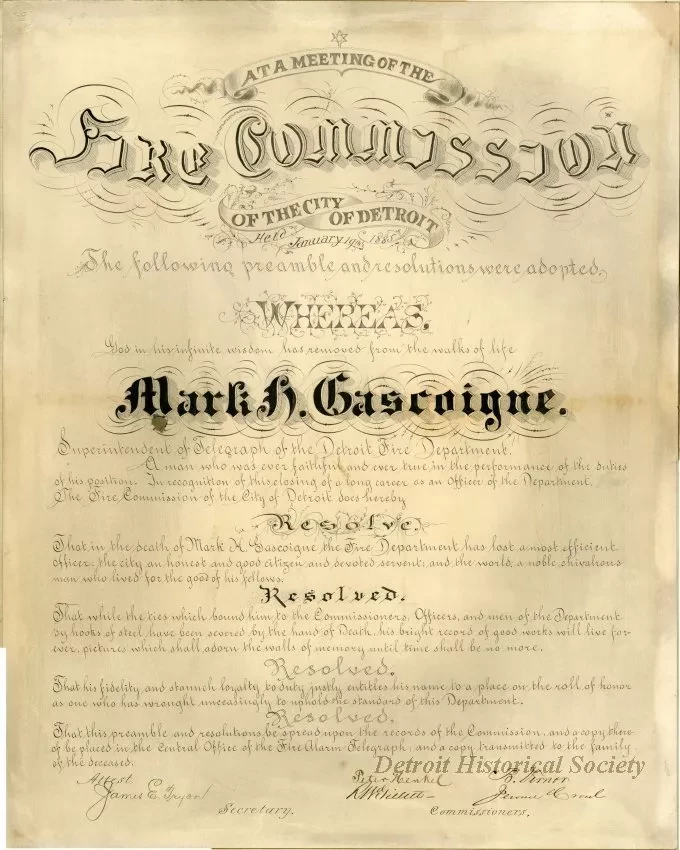 AT A MEETING OF THE
FIRE COMMISSION
OF THE CITY OF DETROIT
Held January 19th 1885.
The following preamble and resolutions were adopted,
WHEREAS.
God in his infinite wisdom has removed from the walks of life
Mark H. Gascoigne.
Superintendent of Telegraph of the Detroit Fire Department.
A man who was ever faithful and ever true in the performance of the duties
of his position. In recognition of this closing of a long career as an Officer of the Department,
The Fire Commission of the City of Detroit does hereby
Resolve.
That in the death of Mark H. Gascoigne the Fire Department has lost a most efficient
officer: the city an honest and good citizen and devoted servent; and the world, a noble, chivalrous
man who lived for the good of his fellows.
Resolved.
That while the ties which bound him to the Commissioners, Officers, and men of the Department
by hooks of steel, have been severed by the hand of Death, his bright record of good works will live for-
ever, pictures which shall adorn the walls of memory until time shall be no more.
Resolved.
That his fidelity and staunch loyalty to duty justly entitles his name to a place on the roll of honor
as one who has wrought unceasingly to uphold the standard of this Department.
Resolved.
That this preamble and resolutions be spread upon the records of the Commission, and a copy there-
of be placed in the Central Office of the Fire Alarm Telegraph, and a copy transmitted to the family
of the deceased.
Detroit Historical Society
Attest
James E. Tryon
Secretary.
Peter Henkel
Vernor
Jerome Croul
Commissioners.